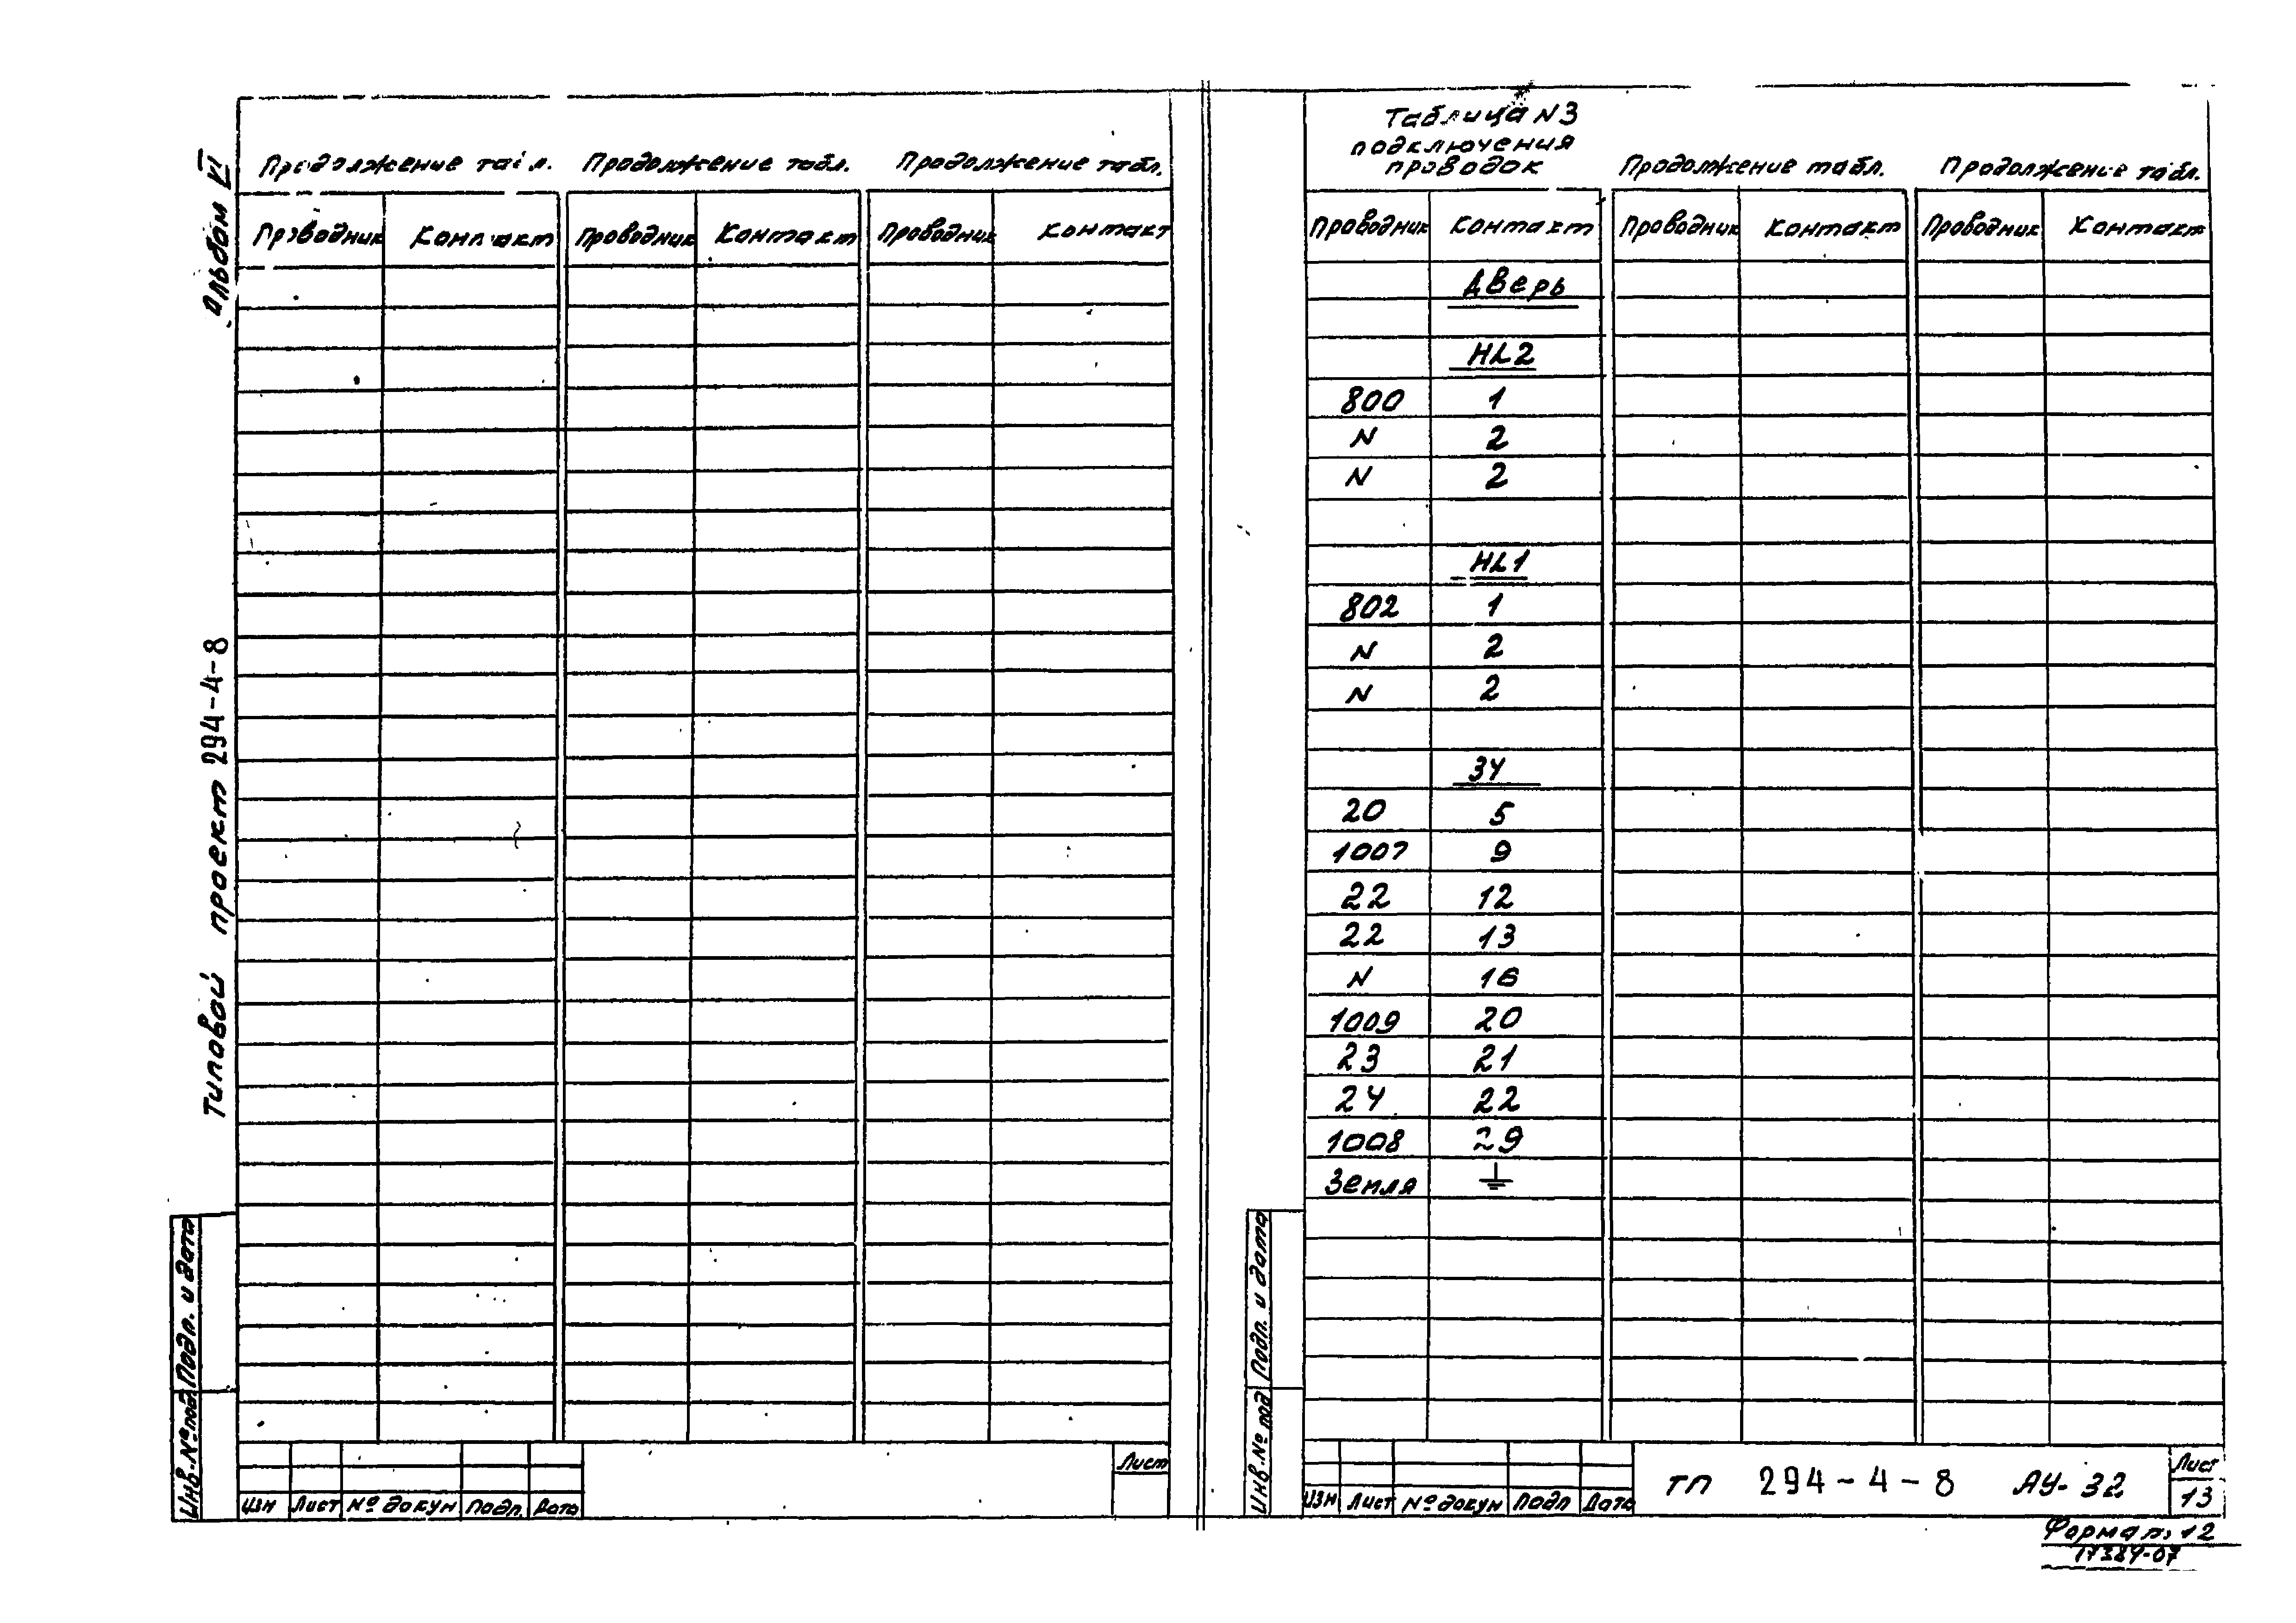 Альбом VI
Типовой проект 294-4-8
Подл. и дата
Инв.№ под
Продолжение табл. Продолжение табл. Продолжение табл.
Проводник Контакт Проводник Контакт Проводник Контакт
Изм Лист № докум Подп. Дата
Лист
Таблица N3
подключения
проводок
Продолжение табл. Продолжение табл.
Проводник Контакт Проводник Контакт Проводник Контакт
Дверь
HL2
800 1
N 2
N 2
HL1
802 1
N 2
N 2
3У
20 5
1007 9
22 12
22 13
N 16
1009 20
23 21
24 22
1008 29
Земля ⏚
Подп. и дата
Инв.№ под
Изм Лист № докум Подп Дата
ТП 294-4-8 АУ-32
Лист
13
Формат 12
17384-07